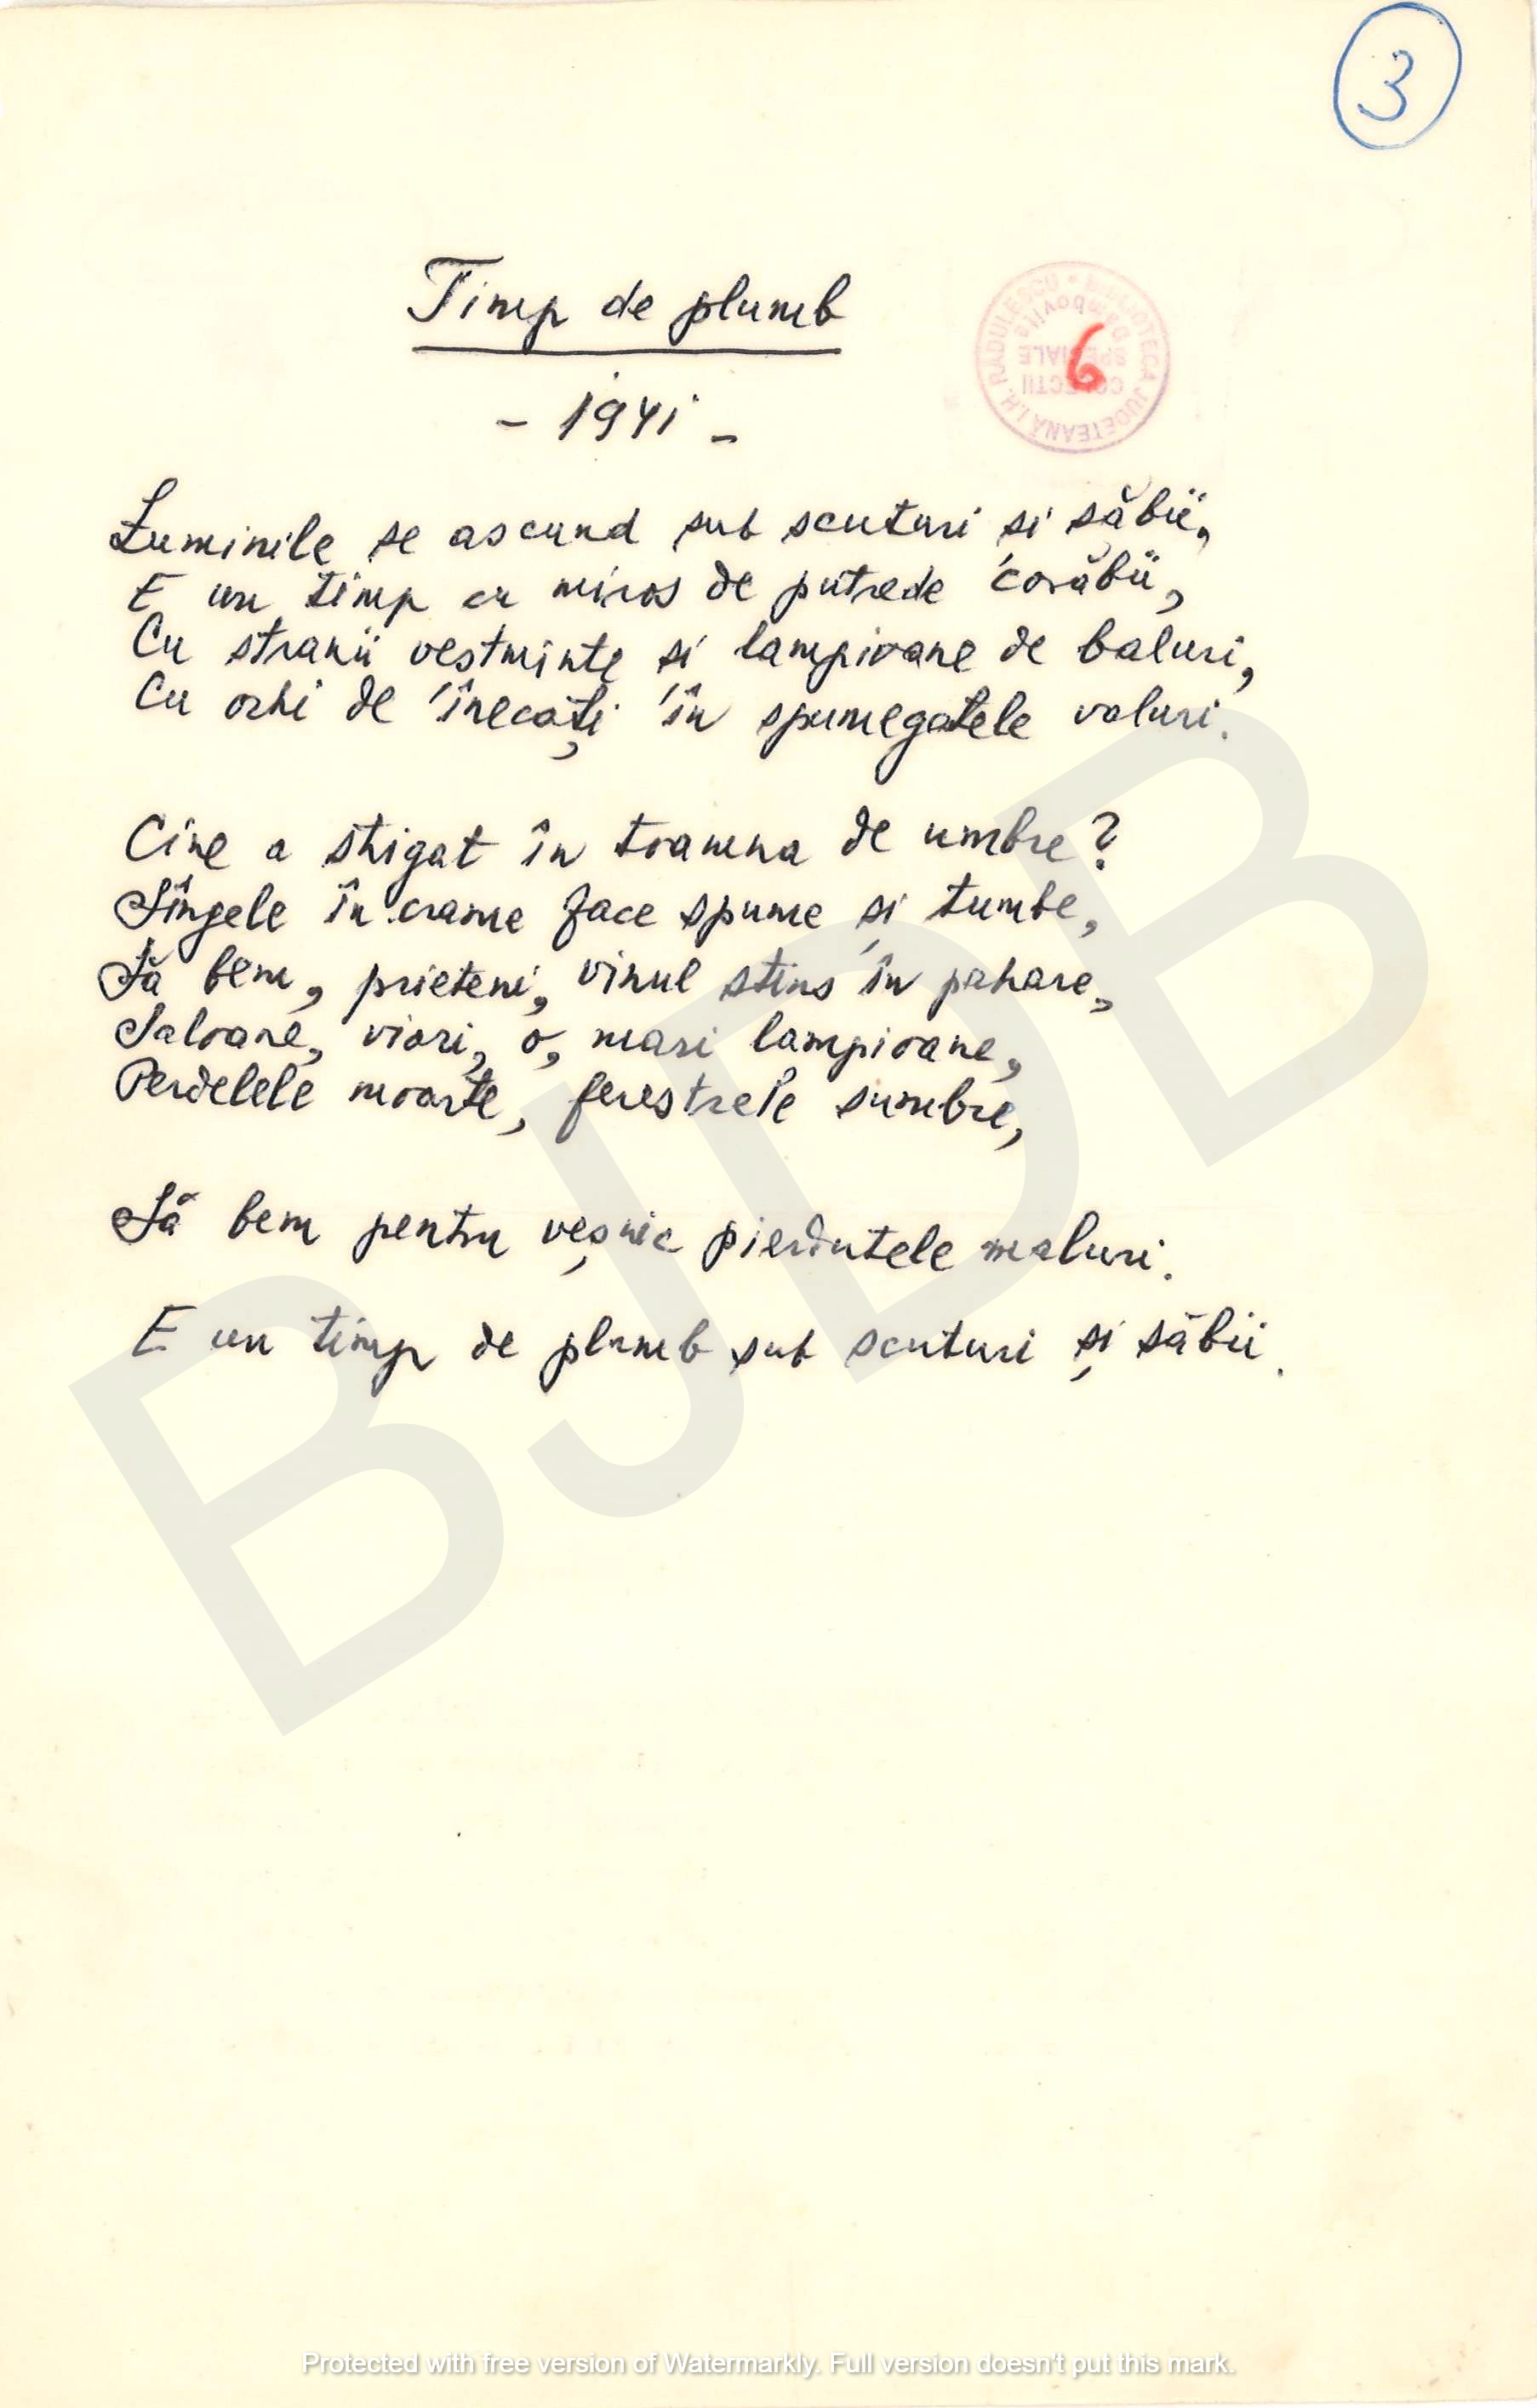 3
Timp de plumb
- 1941 -
6
BIBLIOTECA JUDEȚEANĂ I.H. RĂDULESCU
Dâmbovița
COLECȚII
SPECIALE
Luminile se ascund sub scuturi si săbii,
E un timp cu miros de putrede corăbii,
Cu stranii vestminte și lampioane de baluri,
Cu ochi de înecați în spumegatele valuri.
Cine a strigat în toamna de umbre?
Sîngele în crame face spume și tumbe,
Să bem, prieteni, vinul stins în pahare,
Saloane, viori, o, mari lampioane,
Perdelele moarte, ferestrele sumbre,
Să bem pentru veșnic pierdutele maluri.
E un timp de plumb sub scuturi și săbii.
BJDB
Protected with free version of Watermarkly. Full version doesn't put this mark.